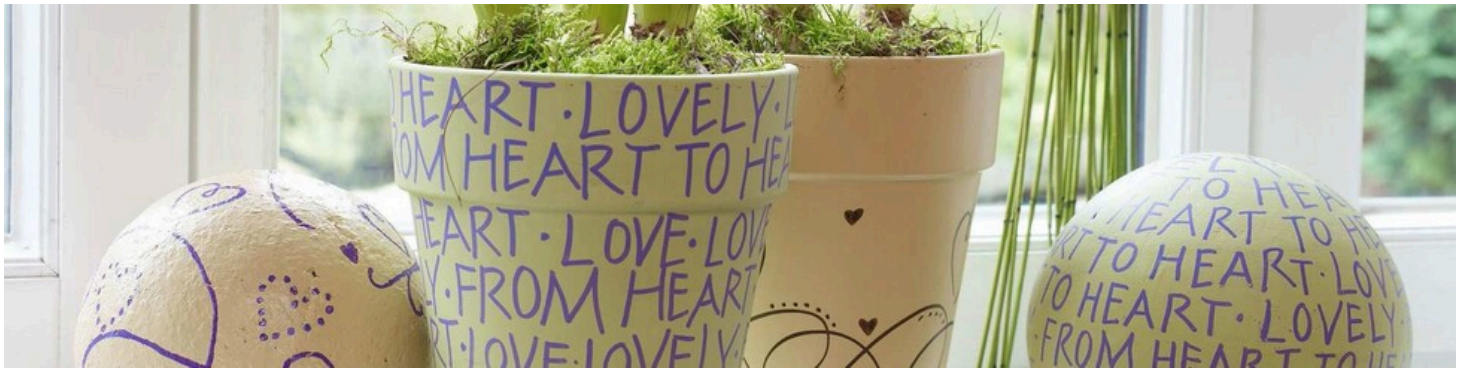 HEART · LOVELY ·
HEART TO
HEART · LOVE · LOVE
· FROM HEART
· LOVE · LOVELY ·
TO
HEART TO
TO HEART · LOVE
TO HEART · LOVELY
FROM HEART TO